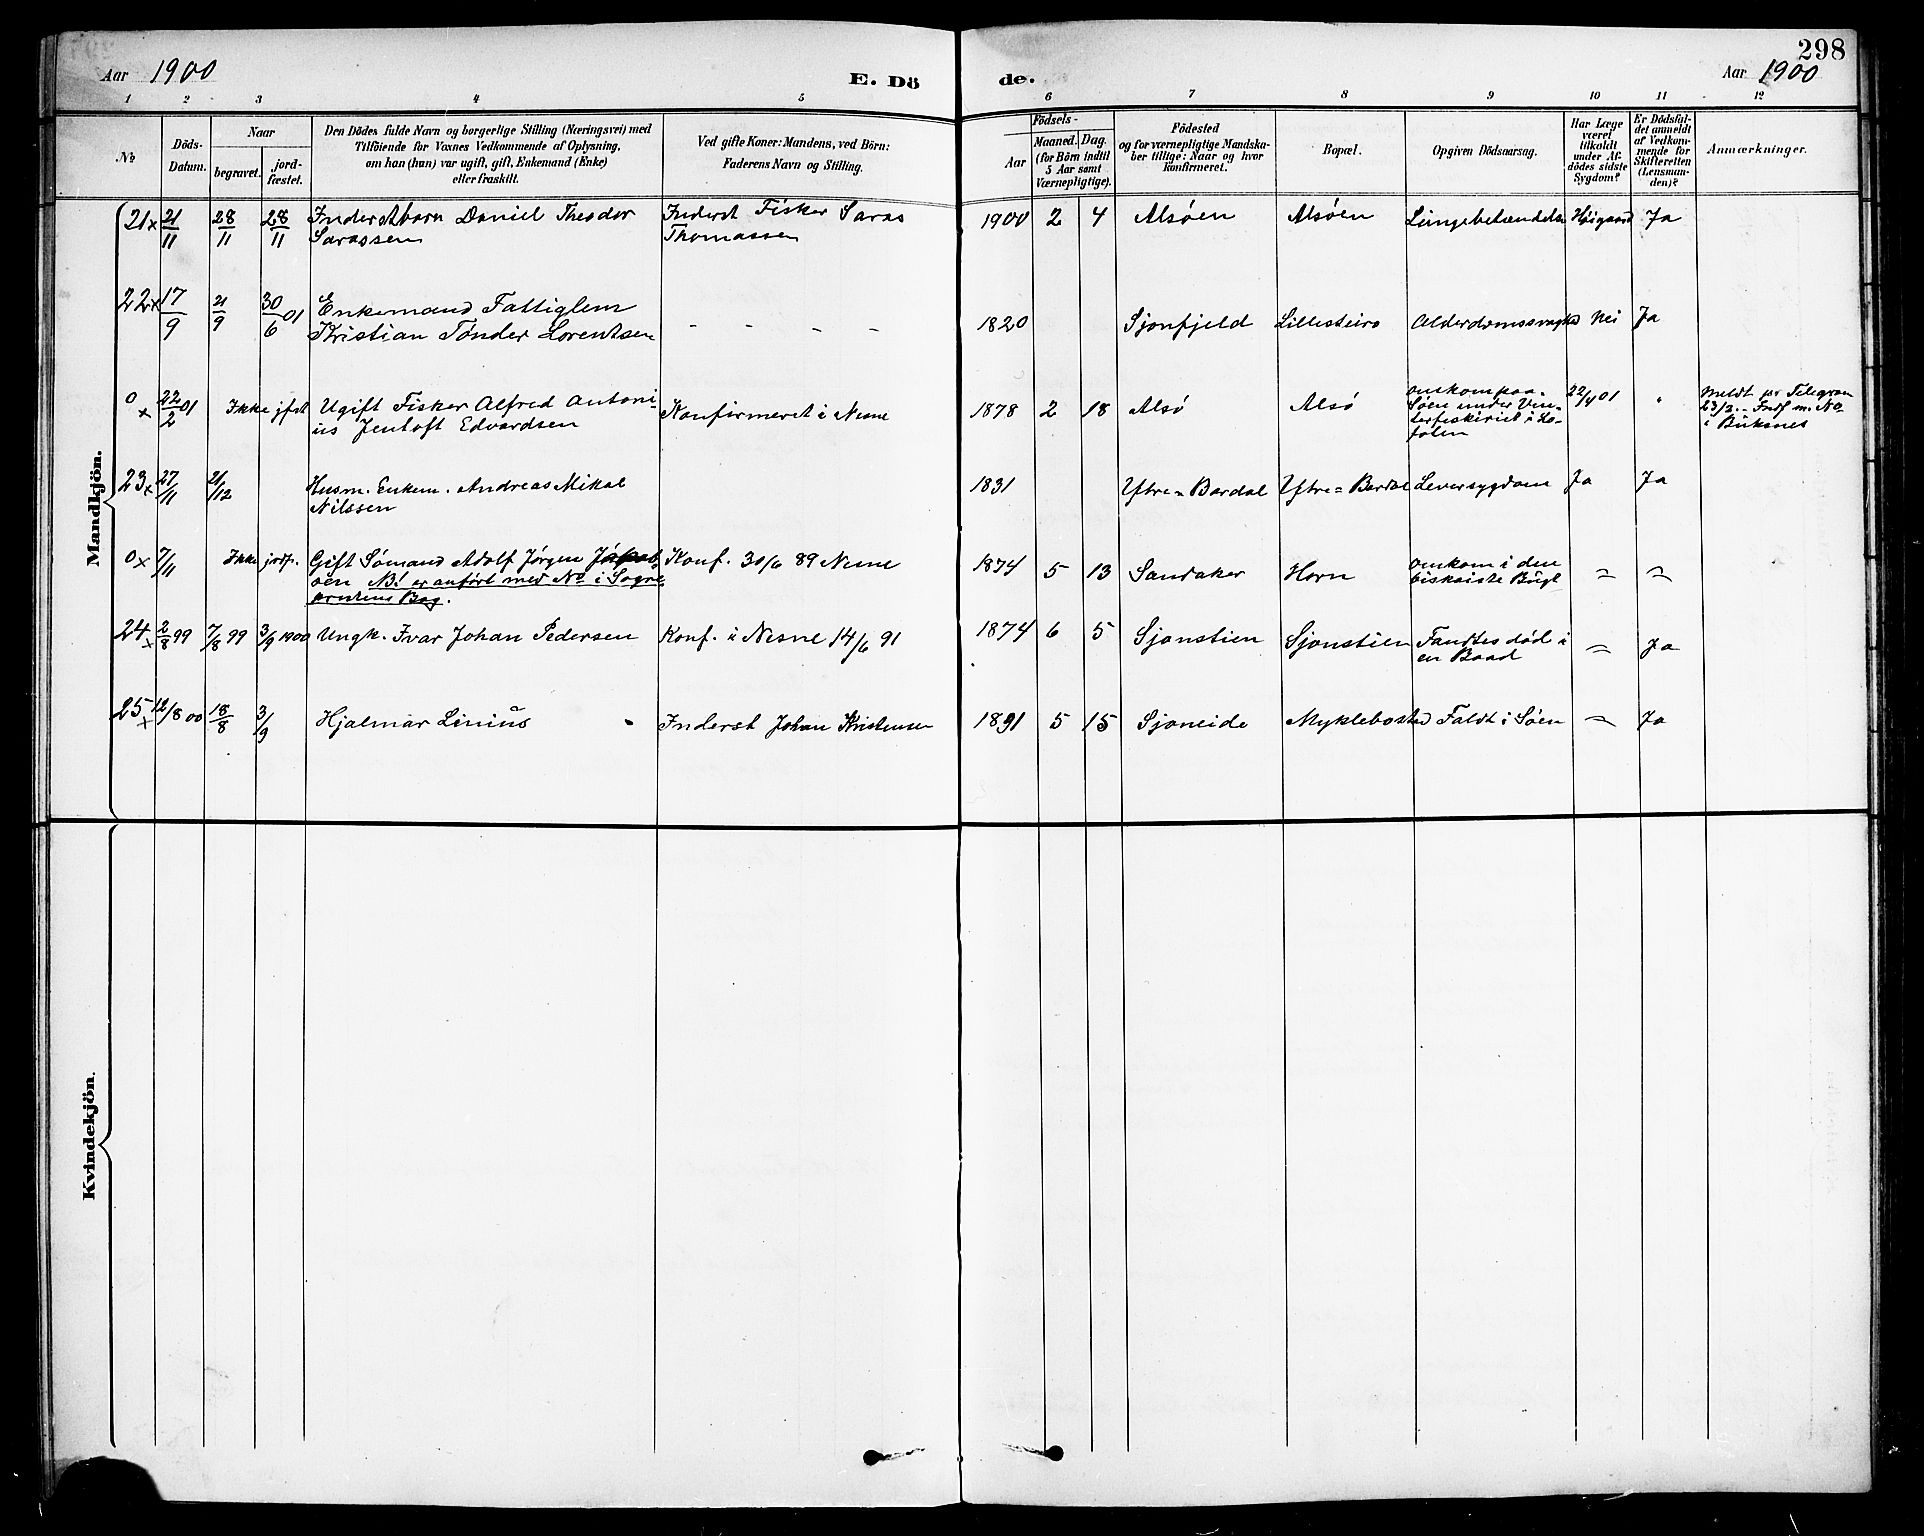 298
Aar 1900
E. Dö
de.
Aar 1900
1 2 3 4 5 6 7 8 9 10 11 12
No
Döds-
Datum.
Naar
begravet.
jord-
fæstet.
Den Dödes fulde Navn og borgerlige Stilling (Næringsvei) med
Tilföiende for Voxnes Vedkommende af Oplysning,
om han (hun) var ugift, gift, Enkemand (Enke)
eller fraskilt.
Ved gifte Koner: Mandens, ved Börn:
Faderens Navn og Stilling.
Födsels-
Aar
Maaned. Dag.
(for Börn indtil
5 Aar samt
Værnepligtige).
Födested
og for værnepligtige Mandska-
ber tillige: Naar og hvor
konfirmeret.
Bopæl.
Opgiven Dödsaarsag.
Har Læge
været
tilkaldt
under Af-
dödes sidste
Sygdom?
Er Dödsfal-
det anmeldt
af Vedkom-
mende for
Skifteretten
(Lensman-
den)?
Anmærkninger.
Mandkjön.
21 x 21/11 28/11 28/11 Inderstbarn Daniel Theodor Inderst Fisker Saras 1900 2 4 Alsøen Alsøen Lungebetændelse Høigaard Ja
Sarassen Thomassen
22 x 17/9 21/9 30/6 01 Enkemand Fattiglem
Kristian Tønder Lorentsen - - - - 1820 Sjonfjeld Lillesteiro Alderdomssvaghd Nei Ja
0 x 22/2 01 Ikke jfst Ugift Fisker Alfred Antoni- Konfirmeret i Nesne 1878 2 18 Alsø Alsø omkom paa
us Jentoft Edvardsen
Søen under Vin-
terfiskeriet i Lo-
foten
22/4 01 " Meldt pr Telegram
23/2. - Indf m. No
i Buksnes
23 x 27/11 21/12 Husm. Enkem. Andreas Mikal 1831 Ytre = Bardal Ytre = Bardal Leversygdom Ja Ja
Nilssen
0 x 7/11 Ikke jrdf. Gift Sømand Adolf Jørgen Jakob Konf. 30/6 89 Nesne 1874 5 13 Sandaker Horn omkom i den
sen NB! er anført med No i Sogne biskaiste Bugt = =
prestens Bog.
24 x 2/8 99 7/8 99 3/9 1900 Ungk. Ivar Johan Pedersen Konf. i Nesne 14/6 91 1874 6 5 Sjonstien Sjonstien Fandtes død i
en Baad = Ja
25 x 12/8 00 18/8 3/9 Hjalmar Linius - Inderst Johan Kristensen 1891 5 15 Sjoneide Myklebostad Faldt i Søen = Ja
Kvindekjön.